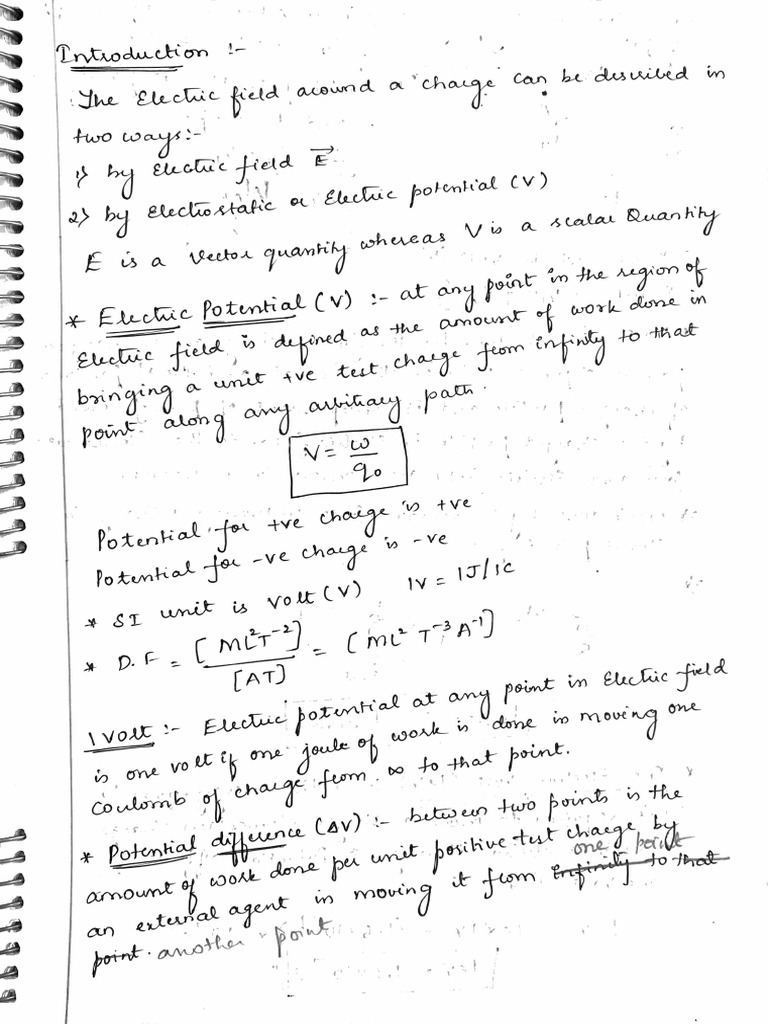 Introduction :-
The Electric field around a charge can be described in
two ways:-
1) by Electric field E⃗
2) by Electrostatic or Electric potential (V)
E is a vector quantity whereas V is a scalar Quantity
* Electric Potential (V) :- at any point in the region of
Electric field is defined as the amount of work done in
bringing a unit +ve test charge from infinity to that
point along any arbitiary path.
V = ω/q₀
Potential for +ve charge is +ve
Potential for -ve charge is -ve
* SI unit is Volt (V) 1V = 1J/1C
* D.F = [ML²T⁻²]/[AT] = [ML² T⁻³A⁻¹]
1 Volt :- Electric potential at any point in Electric field
is one volt if one joule of work is done in moving one
Coulomb of charge from ∞ to that point.
* Potential difference (ΔV) :- between two points is the
amount of work done per unit positive test charge by
an external agent in moving it from ~~infinity to that~~ one point
~~point.~~ another point